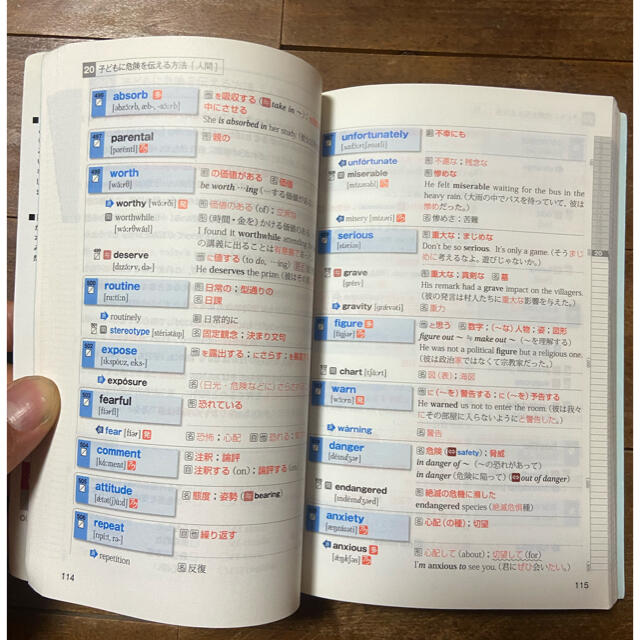 20 子どもに危険を伝える方法［人間］
496 absorb 多
を吸収する (take in ～)
中にさせる
She is absorbed in her study.
497 parental
親の
498 worth
の価値がある 価値
[wə́ːrθ]
be worth …ing (～する価値がある)
worthy [wə́ːrði] 発
価値のある (of)
worthwhile
(時間・金を) かける価値のある
I found it worthwhile attending
の講義に出ることは有意義であった
deserve
に値する (to do, …ing)
He deserves the prize.
500 routine
日常の；型通りの
[ruːtíːn]
日課
routinely
日常的に
stereotype
固定観念；決まり文句
502 expose
を露出する；にさらす；を
exposure
(日光・危険などに) さらされ
503 fearful
恐れている
[fíərfl]
fear [fíər] 発
恐怖；心配 恐れる
504 comment
注釈；論評
[kɑ́ːment]
注釈する (on)；論評する
505 attitude
態度；姿勢 (bearing)
506 repeat
繰り返す
repetition
反復
114
unfortunately
不幸にも
unfortunate
不運な；残念な
miserable
惨めな
He felt miserable waiting for the bus in the
heavy rain. (大雨の中でバスを待っていて，彼は
惨めだった。)
misery
惨めさ；苦難
serious
重大な；まじめな
Don't be so serious. It's only a game. (そうまじ
めに考えるなよ。遊びじゃないか。)
grave
重大な；真剣な 墓
[gréiv]
His remark had a grave impact on the villagers.
(彼の発言は村人たちに重大な影響を与えた。)
gravity
重力
20
figure 多
と思う 数字；(～な) 人物；姿；図形
figure out ～ ≒ make out ～ (～を理解する)
He was not a political figure but a religious one.
(彼は政治家ではなくて宗教家だった。)
chart
図 (表)；海図
warn
に (～を) 警告する；に (～を) 予告する
[wɔ́ːrn]
He warned us not to enter the room. (彼は我々
にその部屋に入らないようにと警告した。)
warning
警告
danger
危険 (safety)；脅威
[déindʒər]
in danger of ～ (～の恐れがあって)
in danger (危険に陥って) out of danger)
endangered
絶滅の危機に瀕した
endangered species (絶滅危惧種)
anxiety
心配 (の種)；切望
anxious 多
心配して (about)；切望して (for)
I'm anxious to see you. (君にぜひ会いたい。)
115